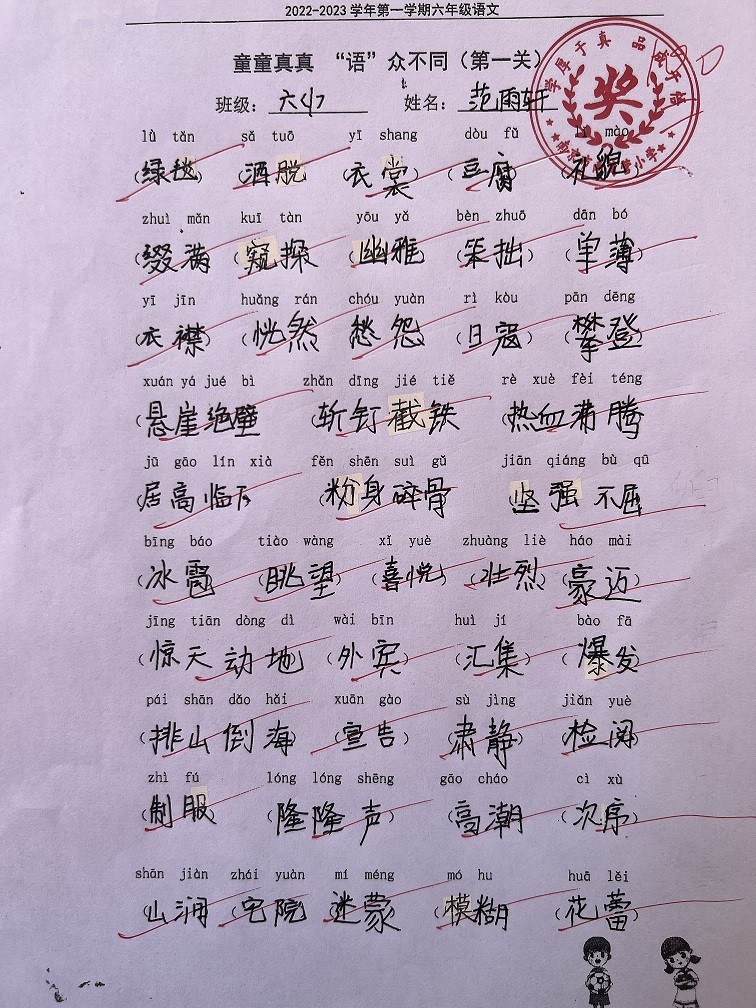 2022-2023 学年第一学期六年级语文
童童真真 “语”众不同（第一关）
班级： 姓名：范雨轩
lǜ tǎn sǎ tuō yī shang dòu fǔ lǐ mào
（绿毯 （洒脱 （衣裳 （豆腐 （礼貌
zhuì mǎn kuī tàn yōu yǎ bèn zhuō dān bó
（缀满 （窥探 （幽雅 （笨拙） （单薄）
yī jīn huǎng rán chóu yuàn rì kòu pān dēng
（衣襟） （恍然 （愁怨 （日寇） （攀登
xuán yá jué bì zhǎn dīng jié tiě rè xuè fèi téng
（悬崖绝壁 （斩钉截铁 （热血沸腾
jū gāo lín xià fěn shēn suì gǔ jiān qiáng bù qū
（居高临下 （粉身碎骨 （坚强不屈
bīng báo tiào wàng xǐ yuè zhuàng liè háo mài
（冰雹 （眺望） （喜悦） （壮烈） （豪迈
jīng tiān dòng dì wài bīn huì jí bào fā
（惊天动地 （外宾） （汇集） （爆发
pái shān dǎo hǎi xuān gào sù jìng jiǎn yuè
（排山倒海 （宣告） （肃静） （检阅
zhì fú lóng lóng shēng gāo cháo cì xù
（制服 （隆隆声） （高潮 （次序）
shān jiàn zhái yuàn mí méng mó hu huā lěi
（山涧 （宅院 （迷蒙 （模糊 （花蕾）